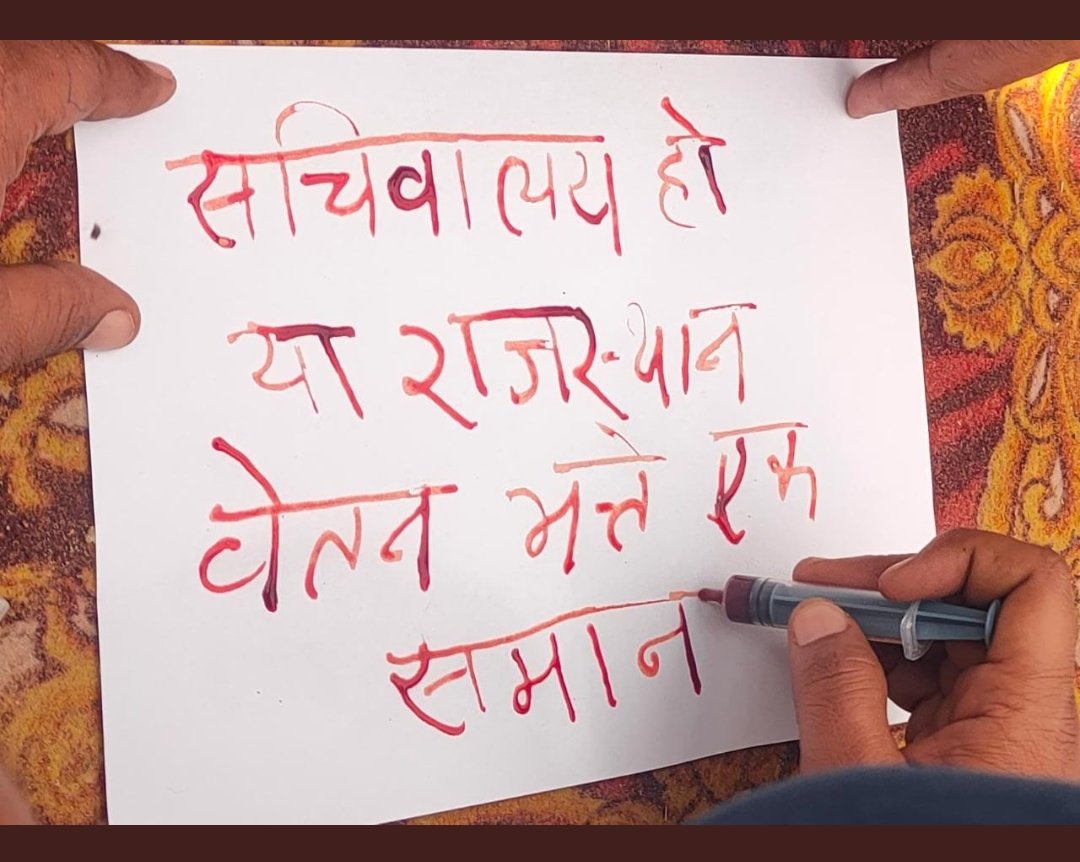 सचिवालय हो
या राजस्थान
वेतन भत्ते एक
समान